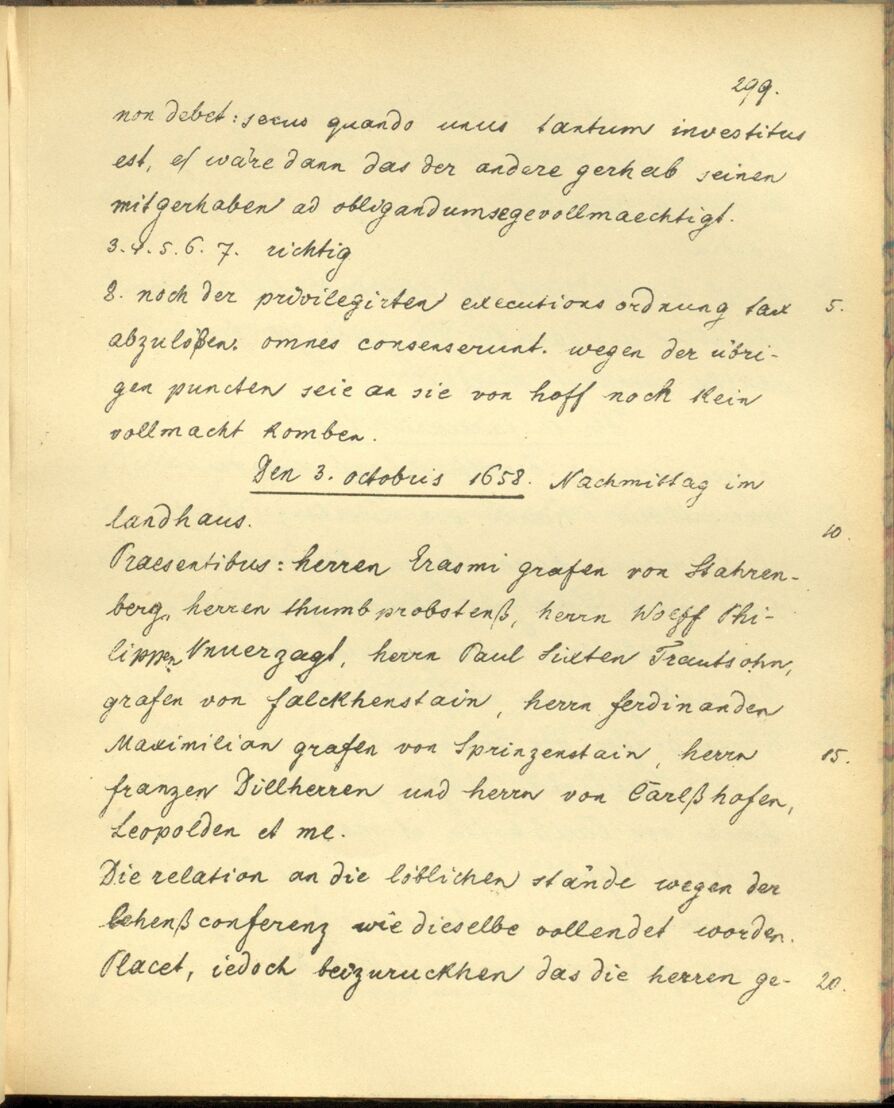 299.
non debet: secus quando unus tantum investitus
est, es wäre dann das der andere gerhab seinen
mitgerhaben ad obligandum se gevollmaechtigt.
3. 4. 5. 6. 7. richtig
8. noch der privilegirten executions ordnung tax 5.
abzulößen. omnes consenserunt. wegen der übri-
gen puncten seie an sie von hoff noch kein
vollmacht komben.
Den 3. octobris 1658. Nachmittag im
landhaus. 10.
Praesentibus: herren Erasmi grafen von Stahren-
berg, herren thumbprobstenß, herrn Wolff Phi-
lippen Unverzagt, herrn Paul Sixten Trautsohn,
grafen von falckhenstain, herrn ferdinanden
Maximilian grafen von Sprinzenstain, herrn 15.
franzen Dillherren und herrn von Carlßhofen,
Leopolden et me.
Die relation an die löblichen stände wegen der
lehenß conferenz wie dieselbe vollendet worden.
Placet, iedoch beizuruckhen das die herren ge- 20.